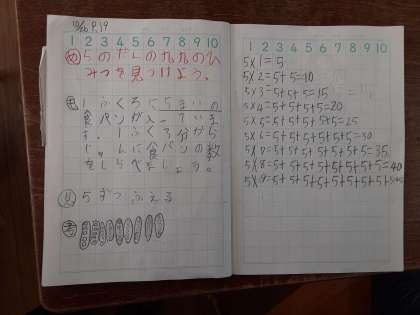 9.19
1 2 3 4 5 6 7 8 9 10
め 5のだんの九九のひ
みつを見つけよう。
1ふくろに5まいの
食パンが入っていま
す。1ふくろ分から
じゅんに食パンの数
をしらべましょう。
5ずつふえる
考
1 2 3 4 5 6 7 8 9 10
5×1=5
5×2=5+5=10
5×3=5+5+5=15
5×4=5+5+5+5=20
5×5=5+5+5+5+5=25
5×6=5+5+5+5+5+5=30
5×7=5+5+5+5+5+5+5=35
5×8=5+5+5+5+5+5+5+5=40
5×9=5+5+5+5+5+5+5+5+5